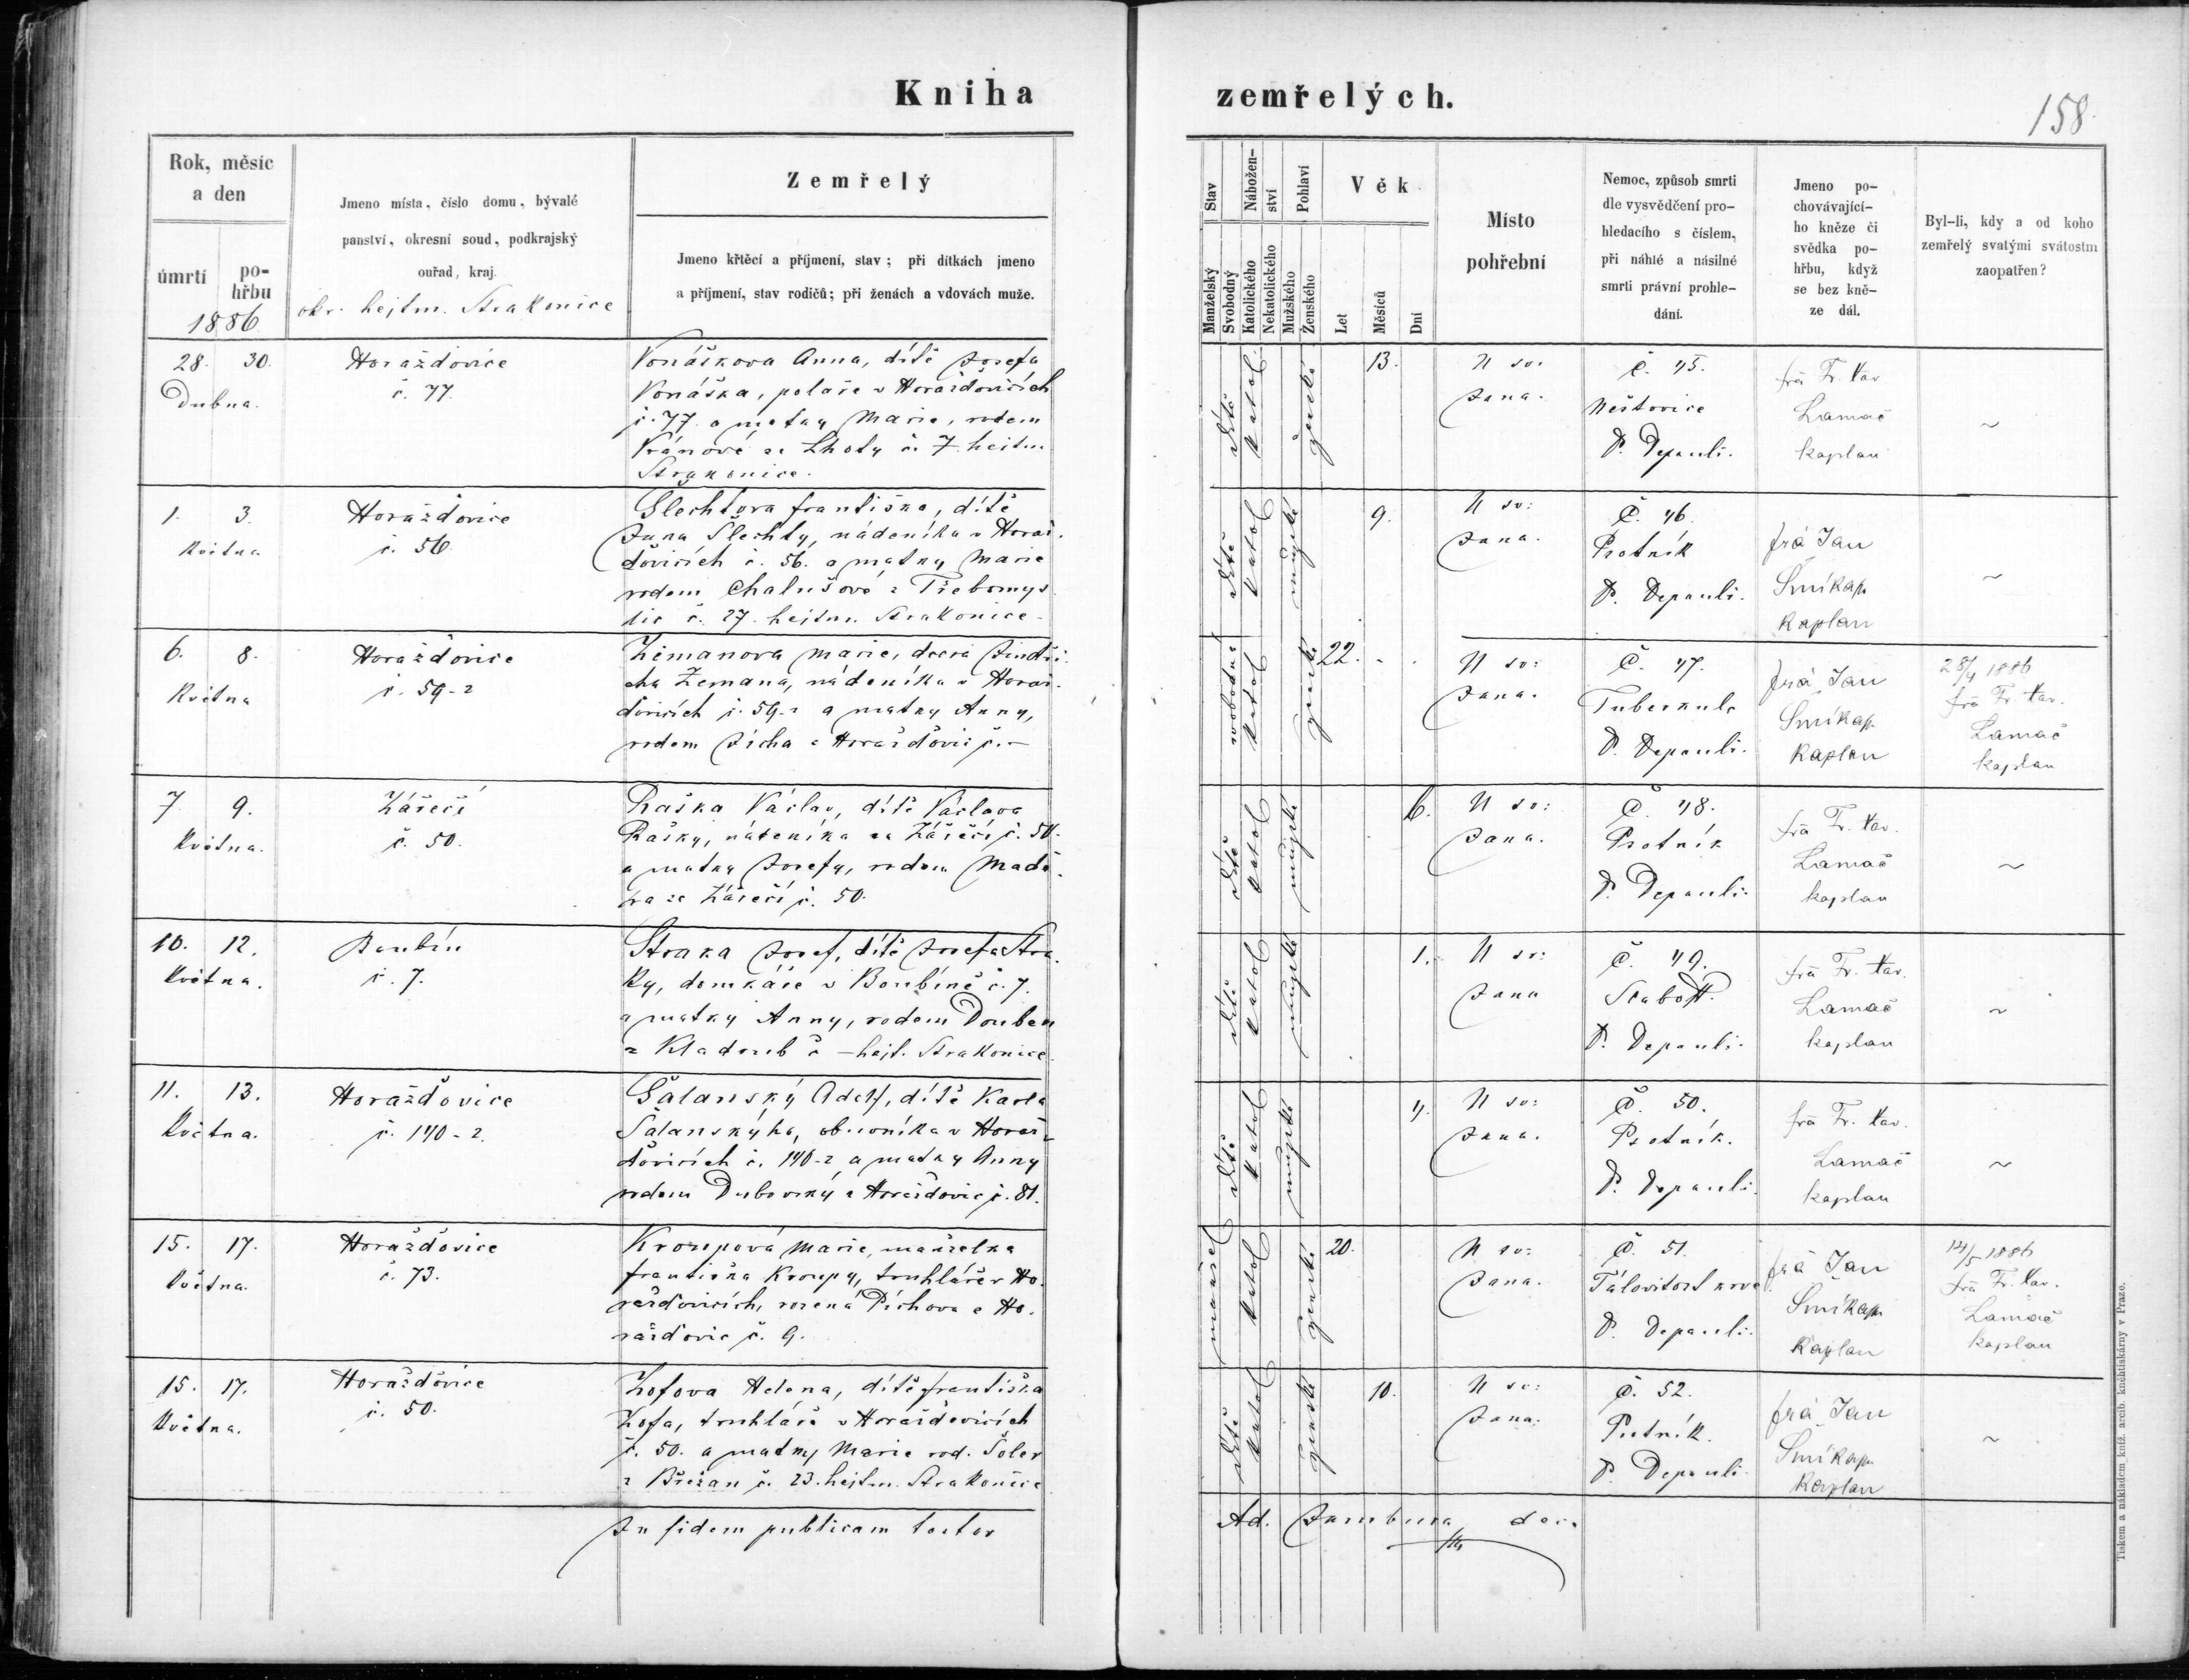 Kniha
zemřelých.
158
Rok, měsíc
a den
úmrtí
po-
hřbu
1886
Jmeno místa, číslo domu, bývalé
panství, okresní soud, podkrajský
ouřad, kraj.
okr. hejtm. Strakonice
Zemřelý
Jmeno křtěcí a příjmení, stav; při dítkách jmeno
a příjmení, stav rodičů; při ženách a vdovách muže.
Stav
Manželský
Svobodný
Nábožen-
ství
Katolického
Nekatolického
Pohlaví
Mužského
Ženského
Věk
Let
Měsíců
Dní
Místo
pohřební
Nemoc, způsob smrti
dle vysvědčení pro-
hledacího s číslem,
při náhlé a násilné
smrti právní prohle-
dání.
Jmeno po-
chovávající-
ho kněze či
svědka po-
hřbu, když
se bez kně-
ze dál.
Byl-li, kdy a od koho
zemřelý svatými svátostm
zaopatřen?
28. 30.
Dubna.
Horažďovice
č. 77.
Vonáškova Anna, dítě Josefa
Vonáška, v Horažďovicích
č. 77. a matky Marie, rodem
Vránové ze Lhoty č. 7. hejtm.
Strakonice.
dítě
katol.
ženské
13.
U sv.
Jana.
Č. 45.
Neštovice
P. Depauli.
frá Fr. Xav
Lamač
kaplan
~
1. 3.
Května
Horažďovice
č. 56.
Šlechtova Františka, dítě
Jana Šlechty, nádeníka v Horaž-
ďovicích č. 56. a matky Marie
rodem Chalušové z Třebomys
lic č. 27. hejtm. Strakonice
dítě
katol
mužské
9.
U sv:
Jana.
Č. 46.
Psotník
P. Depauli.
frá Jan
kaplan
~
6. 8.
Května
Horažďovice
č. 59-2
Zemanova Marie, dcera Jindři-
cha Zemana, nádeníka v Horaž-
ďovicích č. 59-2 a matky Anny,
rodem Jícha z Horažďovic č. –
svobodná
katol
ženské
22.
U sv:
Jana.
Č. 47.
Tuberkule
P. Depauli.
frá Jan
kaplan
28/4 1886
frá Fr. Xav.
Lamač
kaplan
7. 9.
Května.
Zářečí
č. 50.
Raška Václav, dítě Václava
Rašky, nádeníka ze Zářečí č. 50.
a matky Josefy, rodem Madě-
ra ze Zářečí č. 50.
dítě
katol
mužské
6.
U sv:
Jana.
Č. 48.
Psotník
P. Depauli.
frá Fr. Xav.
Lamač
kaplan
~
10. 12.
Května.
Boubín
č. 7.
Straka Josef, dítě Josefa Stra-
ky, domkáře v Boubíně č. 7.
a matky Anny, rodem Douben
z Kladrub č – hejt. Strakonice
dítě
katol
mužské
1.
U sv:
Jana
Č. 49.
Slabost.
P. Depauli.
frá Fr. Xav.
Lamač
kaplan
~
11. 13.
Května.
Horažďovice
č. 140-2.
Šalanský Adolf, dítě Karla
Šalanskýho, obuvníka v Horaž-
ďovicích č. 140-2 a matky Anny
rodem Dubovský z Horažďovic č. 81.
dítě
katol
mužské
4.
U sv:
Jana.
Č. 50.
Psotník.
P. Depauli.
frá Fr. Xav.
Lamač
kaplan
~
15. 17.
Května.
Horažďovice
č. 73.
Kroupová Marie, manželka
Františka Kroupy, truhláře v Ho-
ražďovicích, rozená Píchova z Ho-
ražďovic č. 9.
manžel
katol
ženské
20.
U sv:
Jana.
Č. 51.
krve
P. Depauli.
frá Jan
kaplan
14/5 1886
frá Fr. Xav.
Lamač
kaplan
15. 17.
Května.
Horažďovice
č. 50.
Zofova Helena, dítě Františka
Zofa, truhláře v Horažďovicích
č. 50. a matky Marie rod. Šoler
z Břežan č. 23. hejtm. Strakonice
dítě
katol
ženské
10.
U sv:
Jana.
Č. 52.
Psotník.
P. Depauli.
frá Jan
kaplan
~
In fidem publicam testor
Ad. Jambura děk.
Tiskem a nákladem kníž. arcib. kněhtiskárny v Praze.